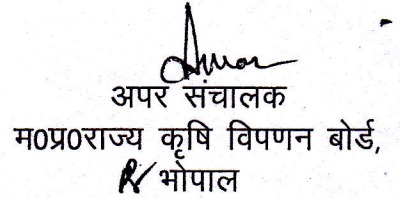 अपर संचालक
म0प्र0राज्य कृषि विपणन बोर्ड,
भोपाल